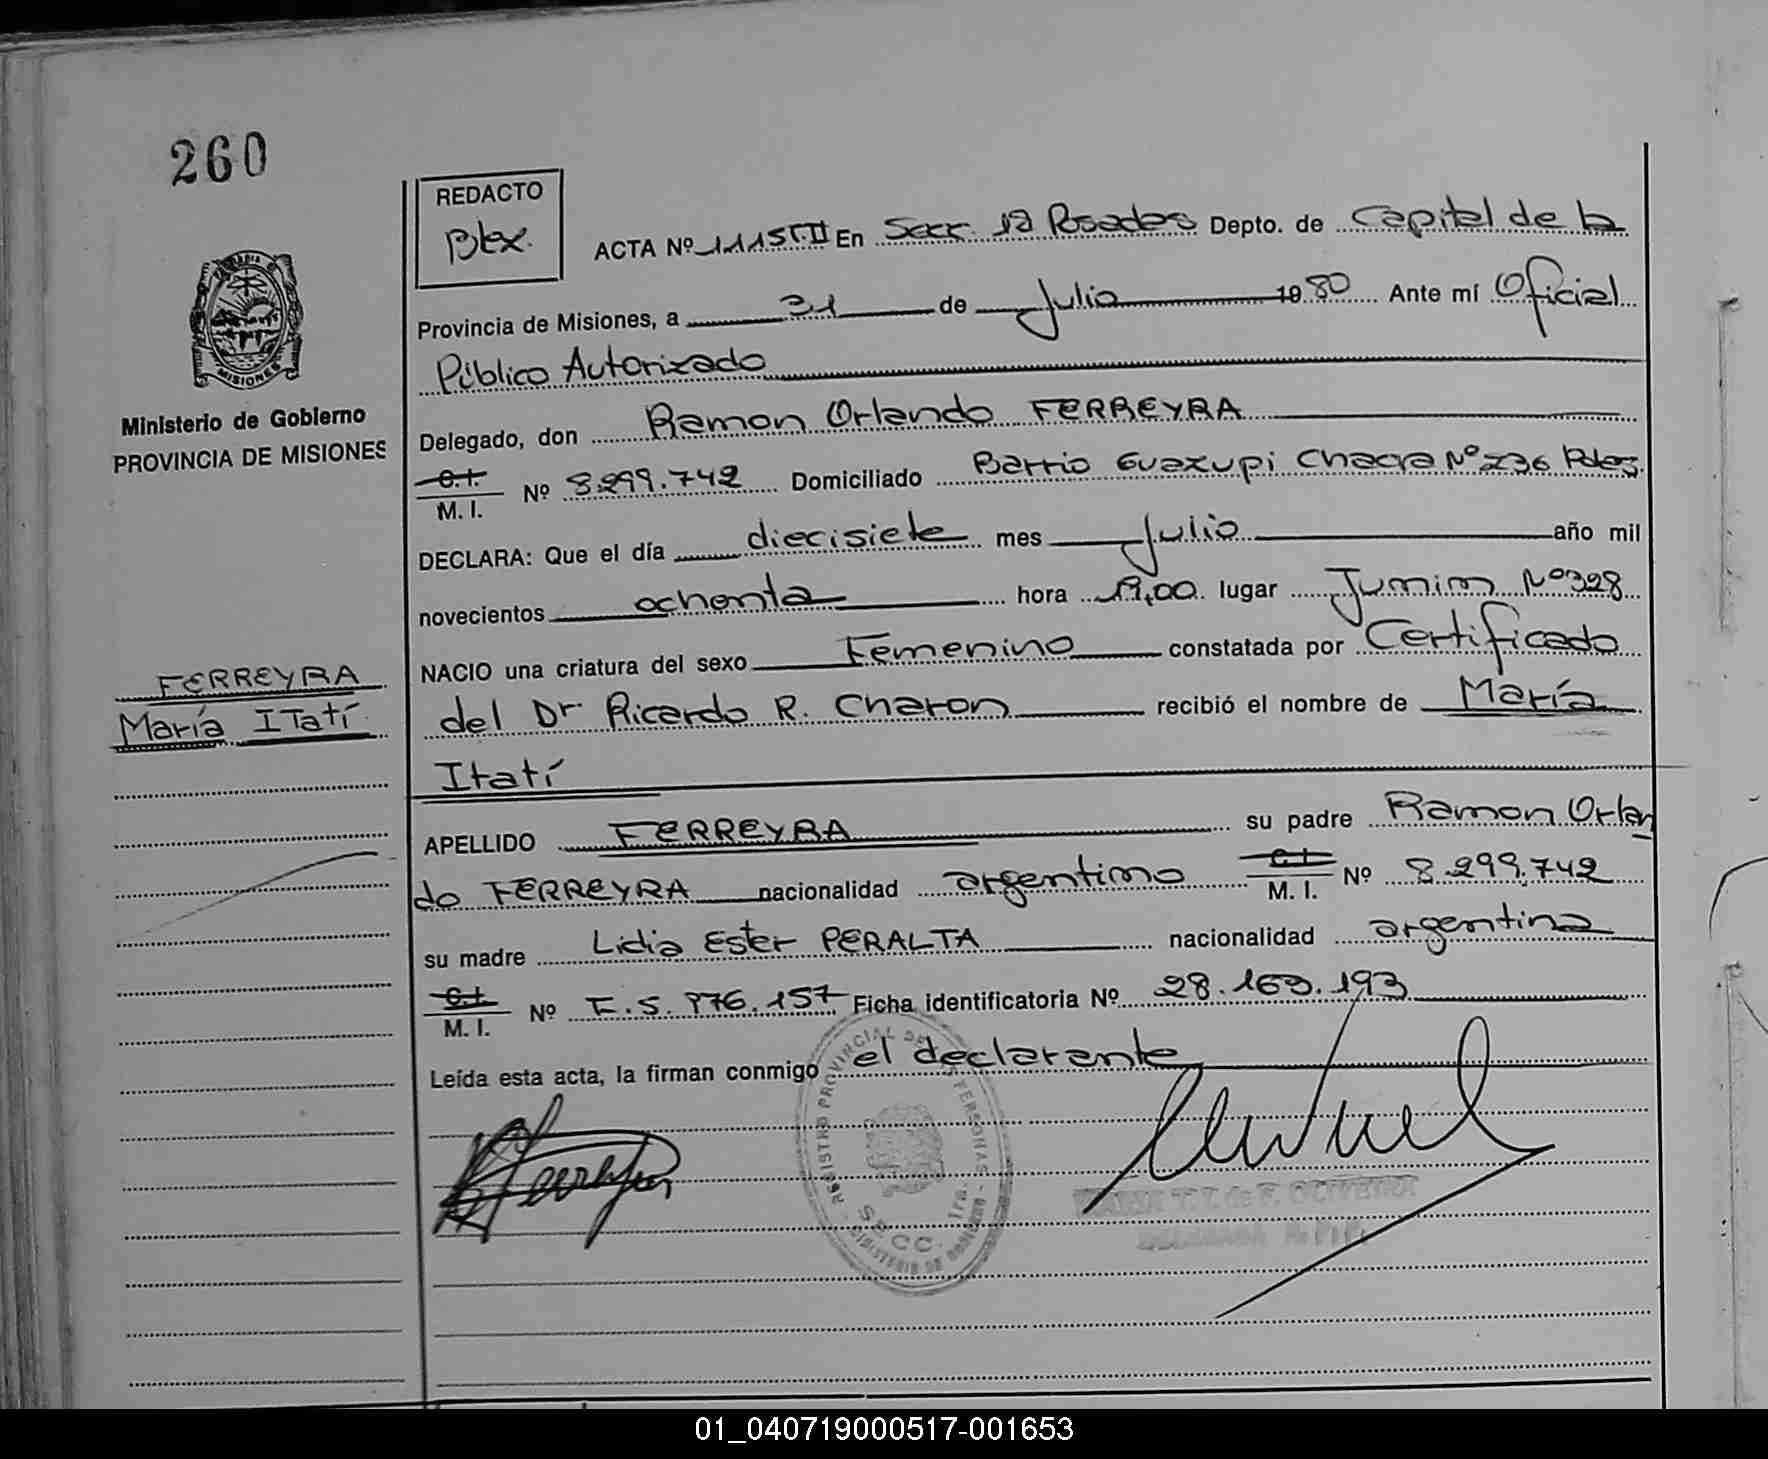 260
REDACTO
Btx.
ACTA Nº 1115T.II En Secc. 1ª Posadas Depto. de Capital de la
Provincia de Misiones, a 31 de Julio 1980 Ante mí Oficial
Público Autorizado
MISIONES
Ministerio de Gobierno
PROVINCIA DE MISIONES
Delegado, don Ramon Orlando FERREYRA
C.I. M. I. Nº 8.299.742 Domiciliado Barrio Guazupi Chacra Nº 236 Pdas.
DECLARA: Que el día diecisiete mes Julio año mil
novecientos ochenta hora 19,00 lugar Junin Nº 328
NACIO una criatura del sexo Femenino constatada por Certificado
del Dr Ricardo R. Charon recibió el nombre de María
Itatí
FERREYRA
María ITatí
APELLIDO FERREYRA su padre Ramon Orlan
do FERREYRA nacionalidad argentino C.I. M. I. Nº 8.299.742
su madre Lidia Ester PERALTA nacionalidad argentina
C.I. M. I. Nº F.5.776.157 Ficha identificatoria Nº 28.163.193
Leída esta acta, la firman conmigo el declarante
REGISTRO PROVINCIAL DE LAS PERSONAS
SECC. 1ra.
MINISTERIO DE GOBIERNO
T. de F. OLIVEIRA
01_040719000517-001653